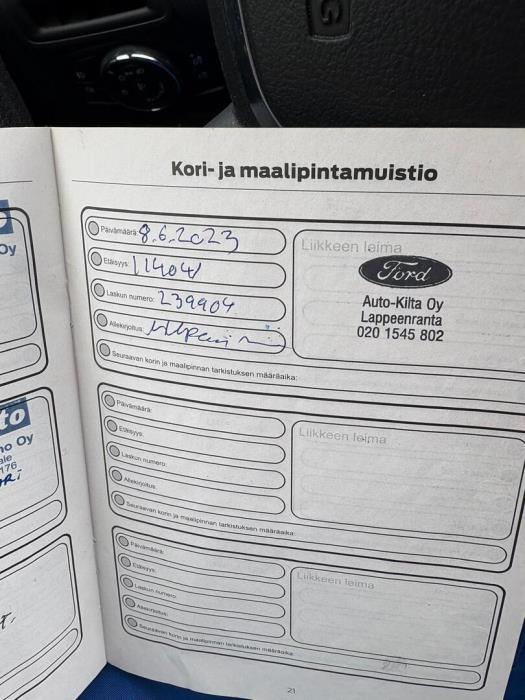 Kori- ja maalipintamuistio
Päivämäärä: 8.6.2023
Etäisyys: 11404
Laskun numero: 239904
Allekirjoitus:
Seuraavan korin ja maalipinnan tarkistuksen määräaika:
Liikkeen leima
Ford
Auto-Kilta Oy
Lappeenranta
020 1545 802
Päivämäärä:
Etäisyys:
Laskun numero:
Allekirjoitus:
Seuraavan korin ja maalipinnan tarkistuksen määräaika:
Liikkeen leima
Päivämäärä:
Etäisyys:
Laskun numero:
Allekirjoitus:
Seuraavan korin ja maalipinnan tarkistuksen määräaika:
Liikkeen leima
21
Oy
to
no Oy
176